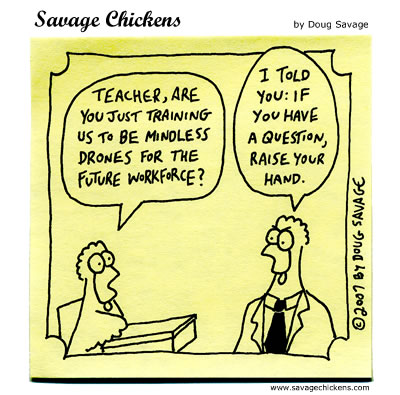 Savage Chickens
by Doug Savage
TEACHER, ARE
YOU JUST TRAINING
US TO BE MINDLESS
DRONES FOR THE
FUTURE WORKFORCE?
I TOLD
YOU: IF
YOU HAVE
A QUESTION,
RAISE YOUR
HAND.
©2007 BY DOUG SAVAGE
www.savagechickens.com